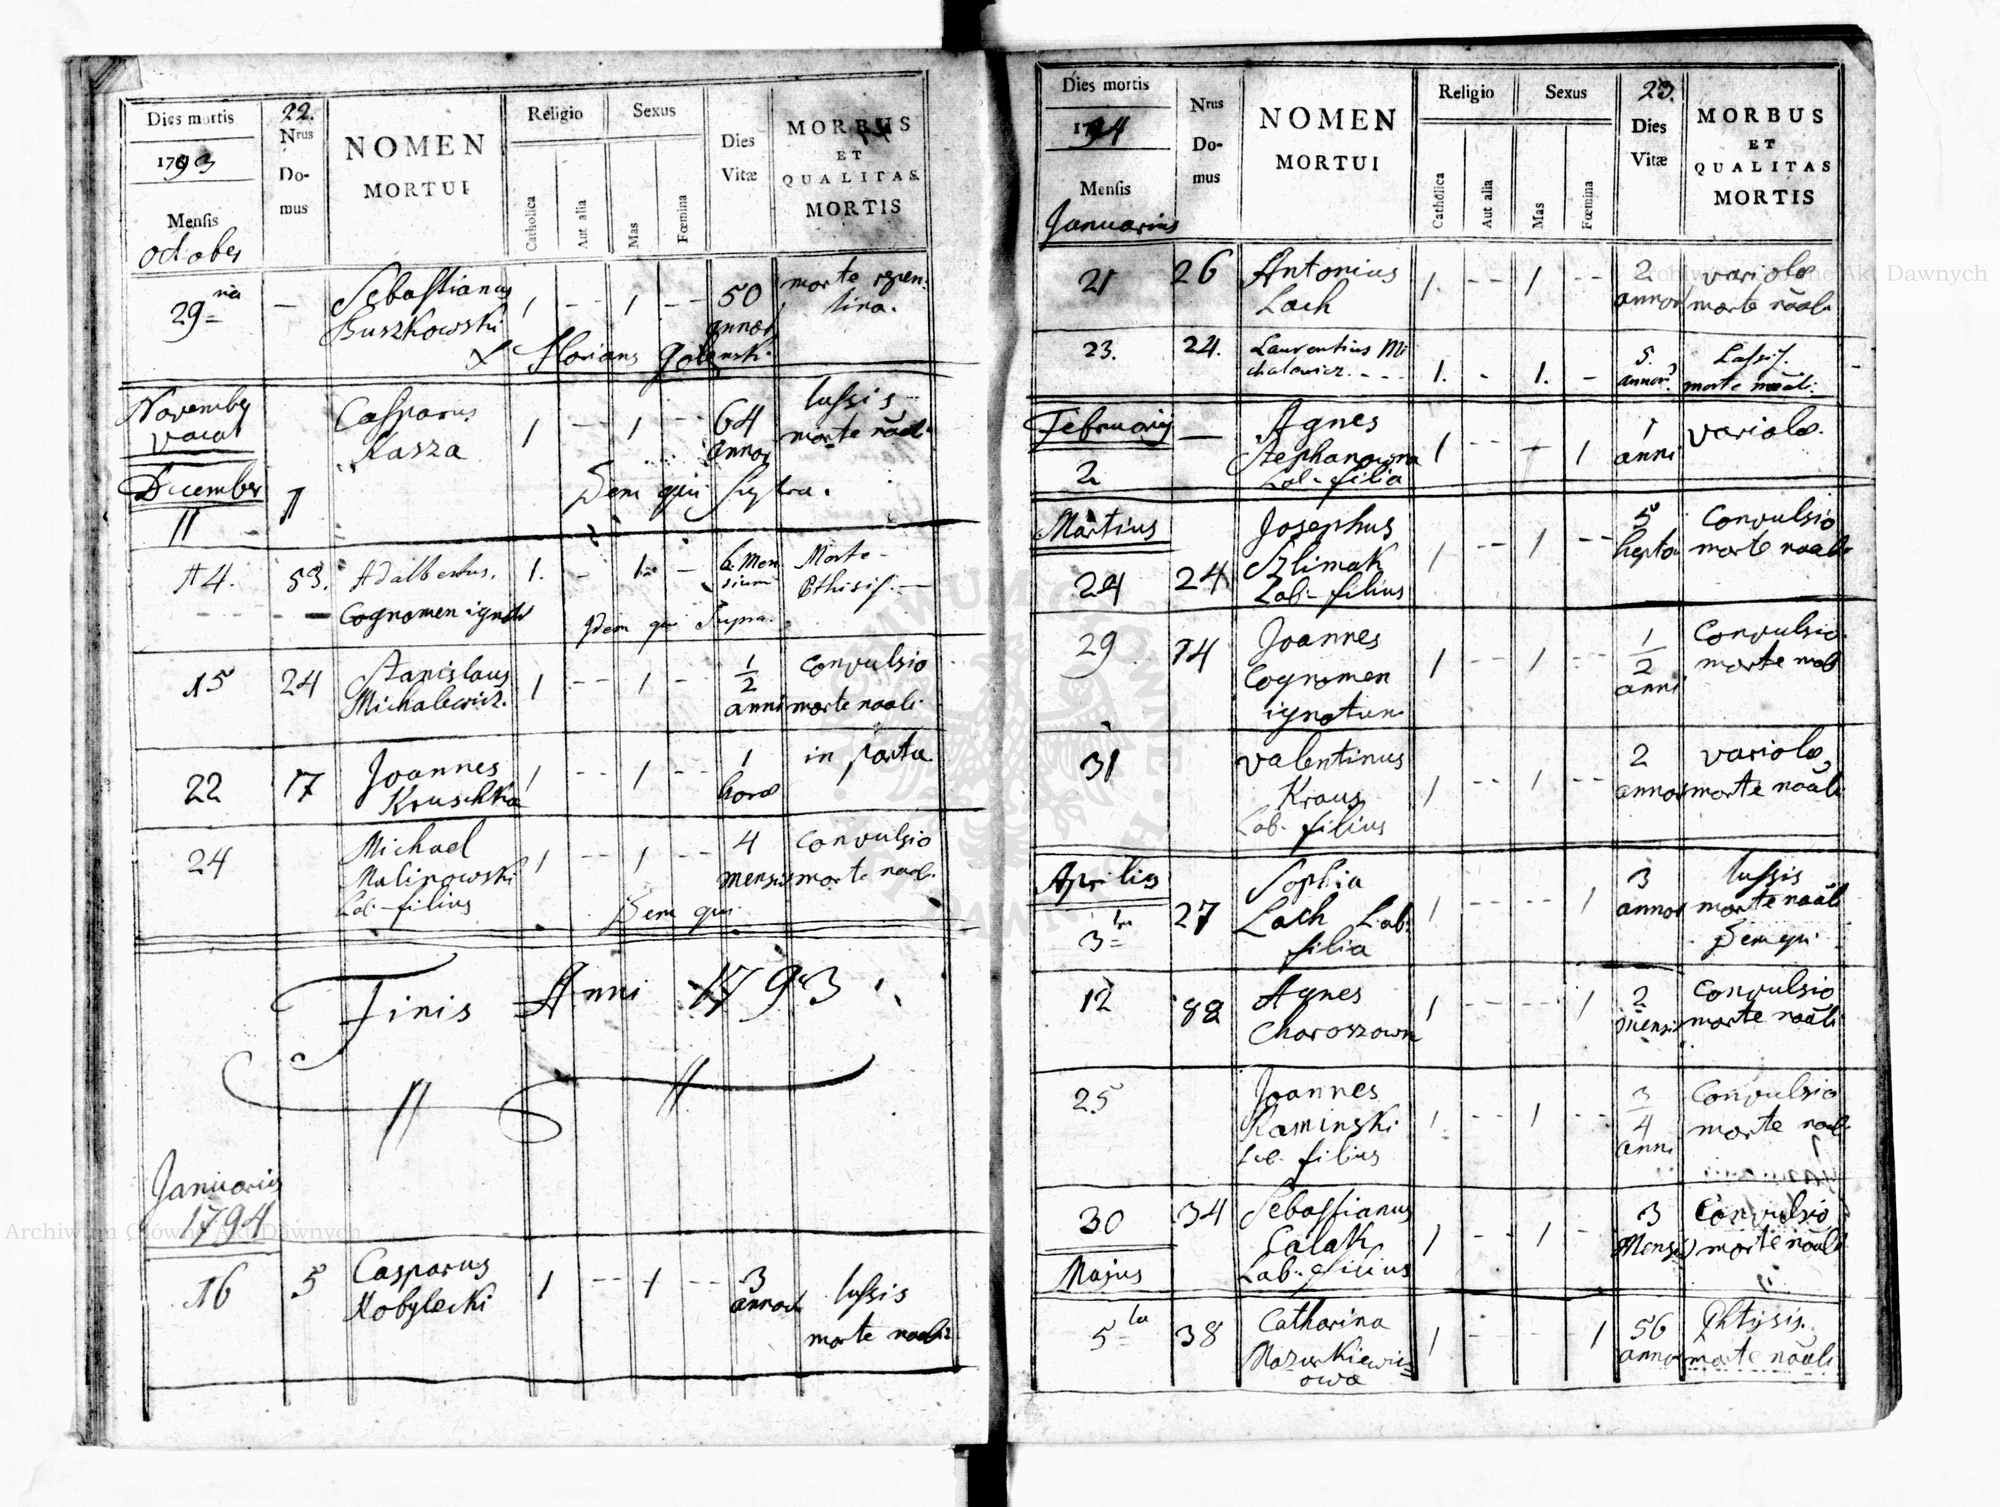 22.
Dies mortis
1793
Mensis
October
Nrus
Do-
mus
NOMEN
MORTUI
Religio
Catholica
Aut alia
Sexus
Mas
Fœmina
Dies
Vitæ
MORBUS
ET
QUALITAS
MORTIS
29 na
–
Sebastianus
Buszkowski
1 - - 1 - -
50
annor
morte repen-
tina.
November
vacat
December
11
11
Casparus
Kasza
1 - - 1 - -
64
annor
tussis
morte nāāli
Idem qui supra.
14.
53.
Adalbertus.
Cognomen ignot
1. - 1. -
6. Men
sium
Morte
Pthisis. —
Idem qui Supra.
15
24
Stanislaus
Michalewicz.
1 - - 1 - -
1/2
anni
convulsio
morte nāāli
22
17
Joannes
Kruschka
1 - - 1 - -
1
horæ
in partu
24
Michael
Malinowski
Lab- filius
1 - - 1 - -
4
mensis
convulsio
morte nāāl.
Idem qui
Finis Anni 1793
Januarius
1794
16
5
Casparus
Kobylecki
1 - - 1 - -
3
annor
tussis
morte naalis
23.
Dies mortis
1794
Mensis
Januarius
Nrus
Do-
mus
NOMEN
MORTUI
Religio
Catholica
Aut alia
Sexus
Mas
Fœmina
Dies
Vitæ
MORBUS
ET
QUALITAS
MORTIS
21
26
Antonius
Lach
1. - - 1 - -
2
annor
variolæ
morte nāāli
23.
24.
Laurentius Mi
chalewicz. - - -
1. - 1. -
5.
annor.
tussis.
morte nāāli.
Februarius
2
—
Agnes
Stephanowna
Lab- filia
1 - - - 1
1
anni
variolæ.
Martius
24
24
Josephus
Szlimak
Lab- filius
1 - - 1 - -
5
hepto
Convulsio
morte nāāli
29
14
Joannes
Cognomen
ignotum
1 - - 1 - -
1/2
anni
Convulsio.
morte nāāl
31
Valentinus
Kraus
Lab- filius
1 - - 1 - -
2
annor
variolæ
morte nāāli
Aprilis
3 tia
27
Sophia
Lach Lab.
filia
1 - - - - 1
3
annor
tussis
morte nāāli
Idem qui
12
88
Agnes
Charoszown
1 - - - - 1
2
mensis
Convulsio
morte nāāli
25
Joannes
Kaminski
Lab- filius
1. - - 1 - -
3/4
anni
Convulsio
morte nāāli
30
34
Sebastianus
Lab- filius
1 - - 1 - -
3
Mensis
Convulsio
morte nāāli
Majus
5 ta
38
Catharina
Mazurkiewicz=
owa
1 - - - - 1
56
annor
Phtysis.
morte nāāli
Archiwum Główne Akt Dawnych
Archiwum Główne Akt Dawnych
ARCHIWUM GŁÓWNE AKT DAWNYCH